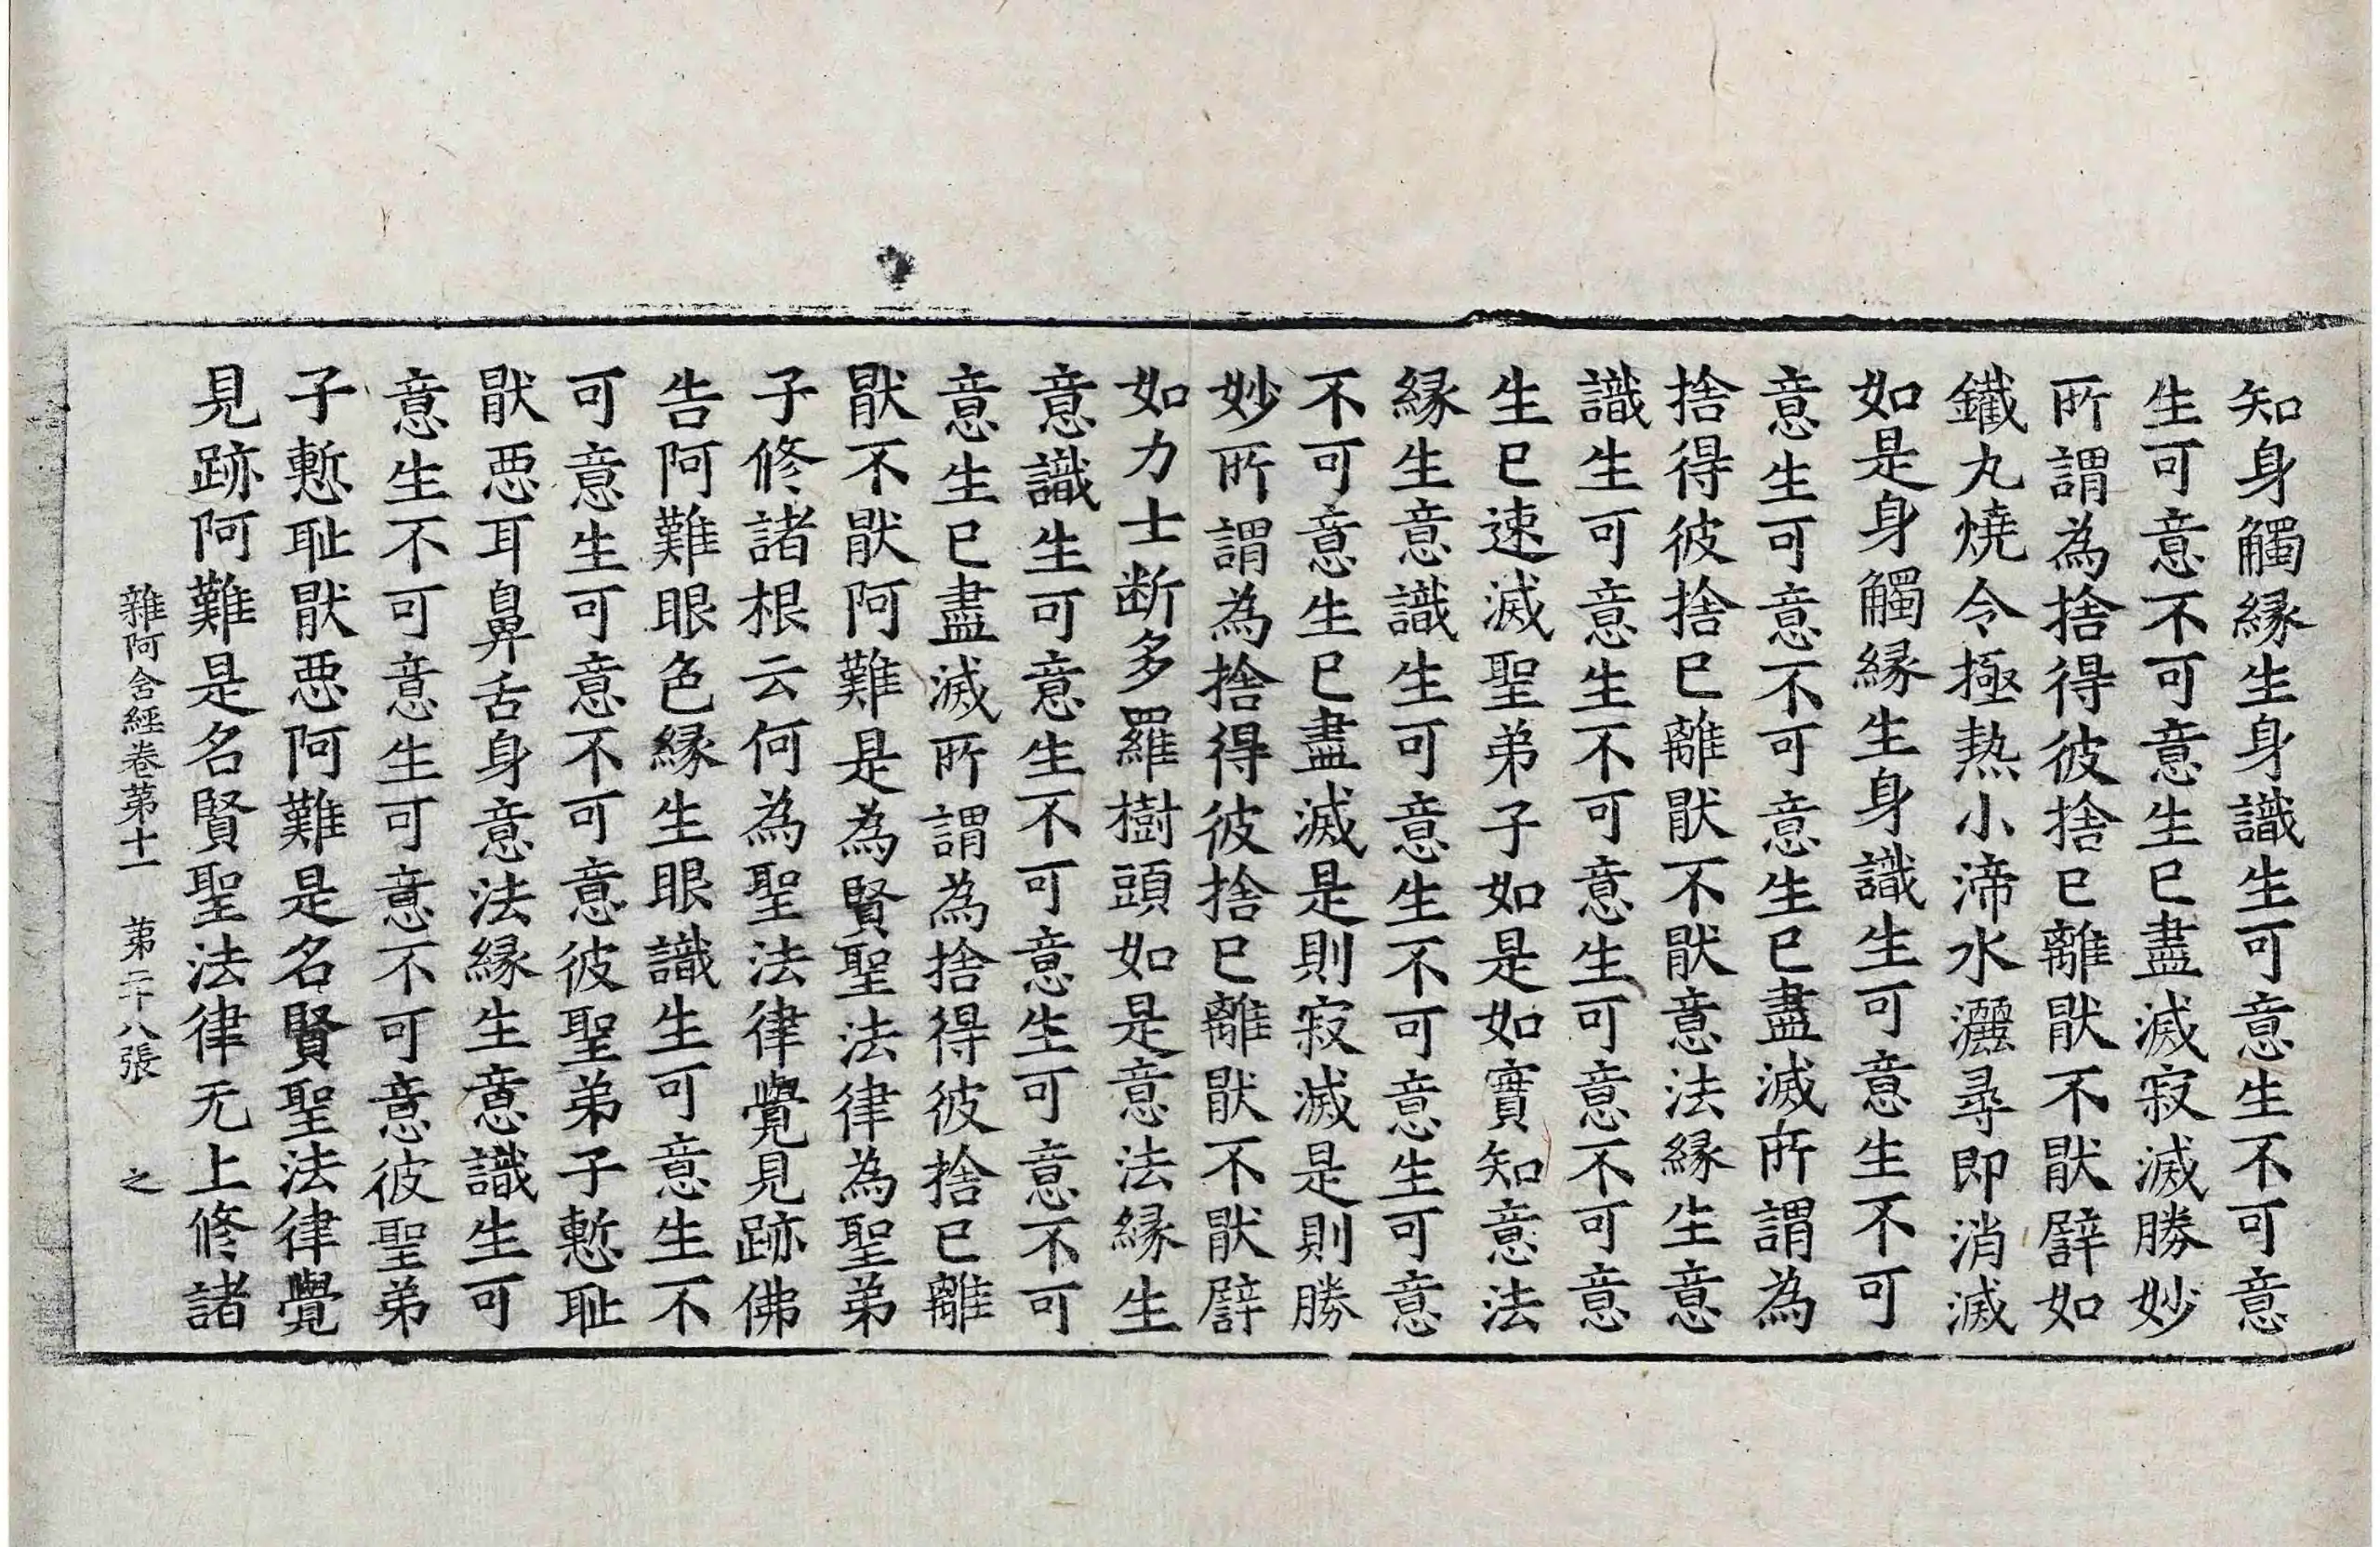 知身觸緣生身識生可意生不可意
生可意不可意生已盡滅寂滅勝妙
所謂為捨得彼捨已離猒不猒譬如
鐵丸燒令極熱小渧水灑尋即消滅
如是身觸緣生身識生可意生不可
意生可意不可意生已盡滅所謂為
捨得彼捨已離猒不猒意法緣生意
識生可意生不可意生可意不可意
生已速滅聖弟子如是如實知意法
緣生意識生可意生不可意生可意
不可意生已盡滅是則寂滅是則勝
妙所謂為捨得彼捨已離猒不猒譬
如力士断多羅樹頭如是意法緣生
意識生可意生不可意生可意不可
意生已盡滅所謂為捨得彼捨已離
猒不猒阿難是為賢聖法律為聖弟
子修諸根云何為聖法律覺見跡佛
告阿難眼色緣生眼識生可意生不
可意生可意不可意彼聖弟子慙耻
猒惡耳鼻舌身意法緣生意識生可
意生不可意生可意不可意彼聖弟
子慙耻猒惡阿難是名賢聖法律覺
見跡阿難是名賢聖法律无上修諸
雜阿含經卷第十一 第二十八張 之